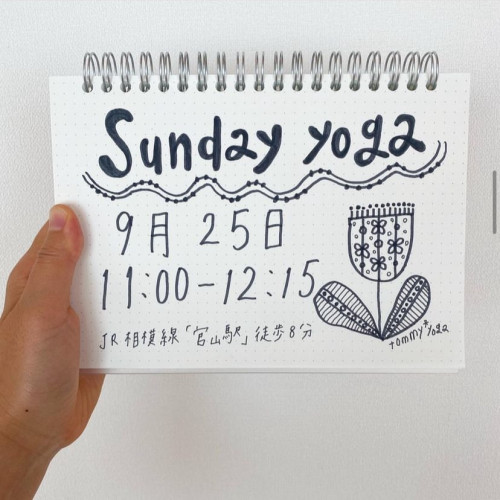 Sunday yoga
9月 25日
11:00-12:15
JR相模線「宮山駅」徒歩8分
tommy*yoga